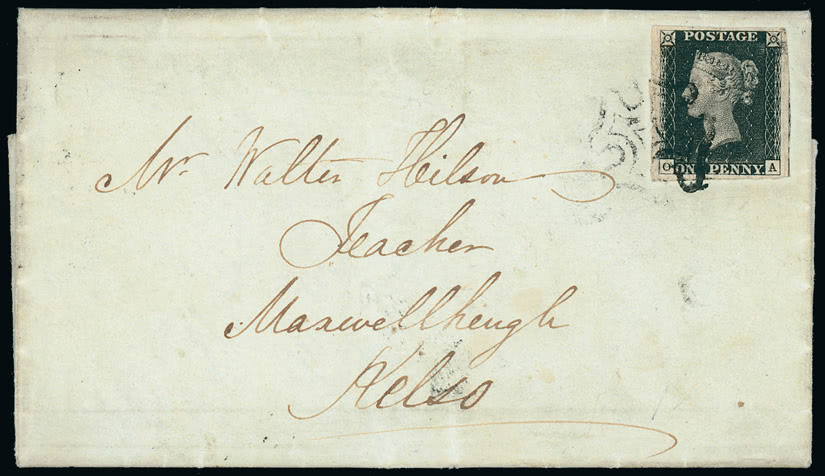 POSTAGE
O A
ONE PENNY
Mr. Walter Hilson
Teacher
Maxwellheugh
Kelso